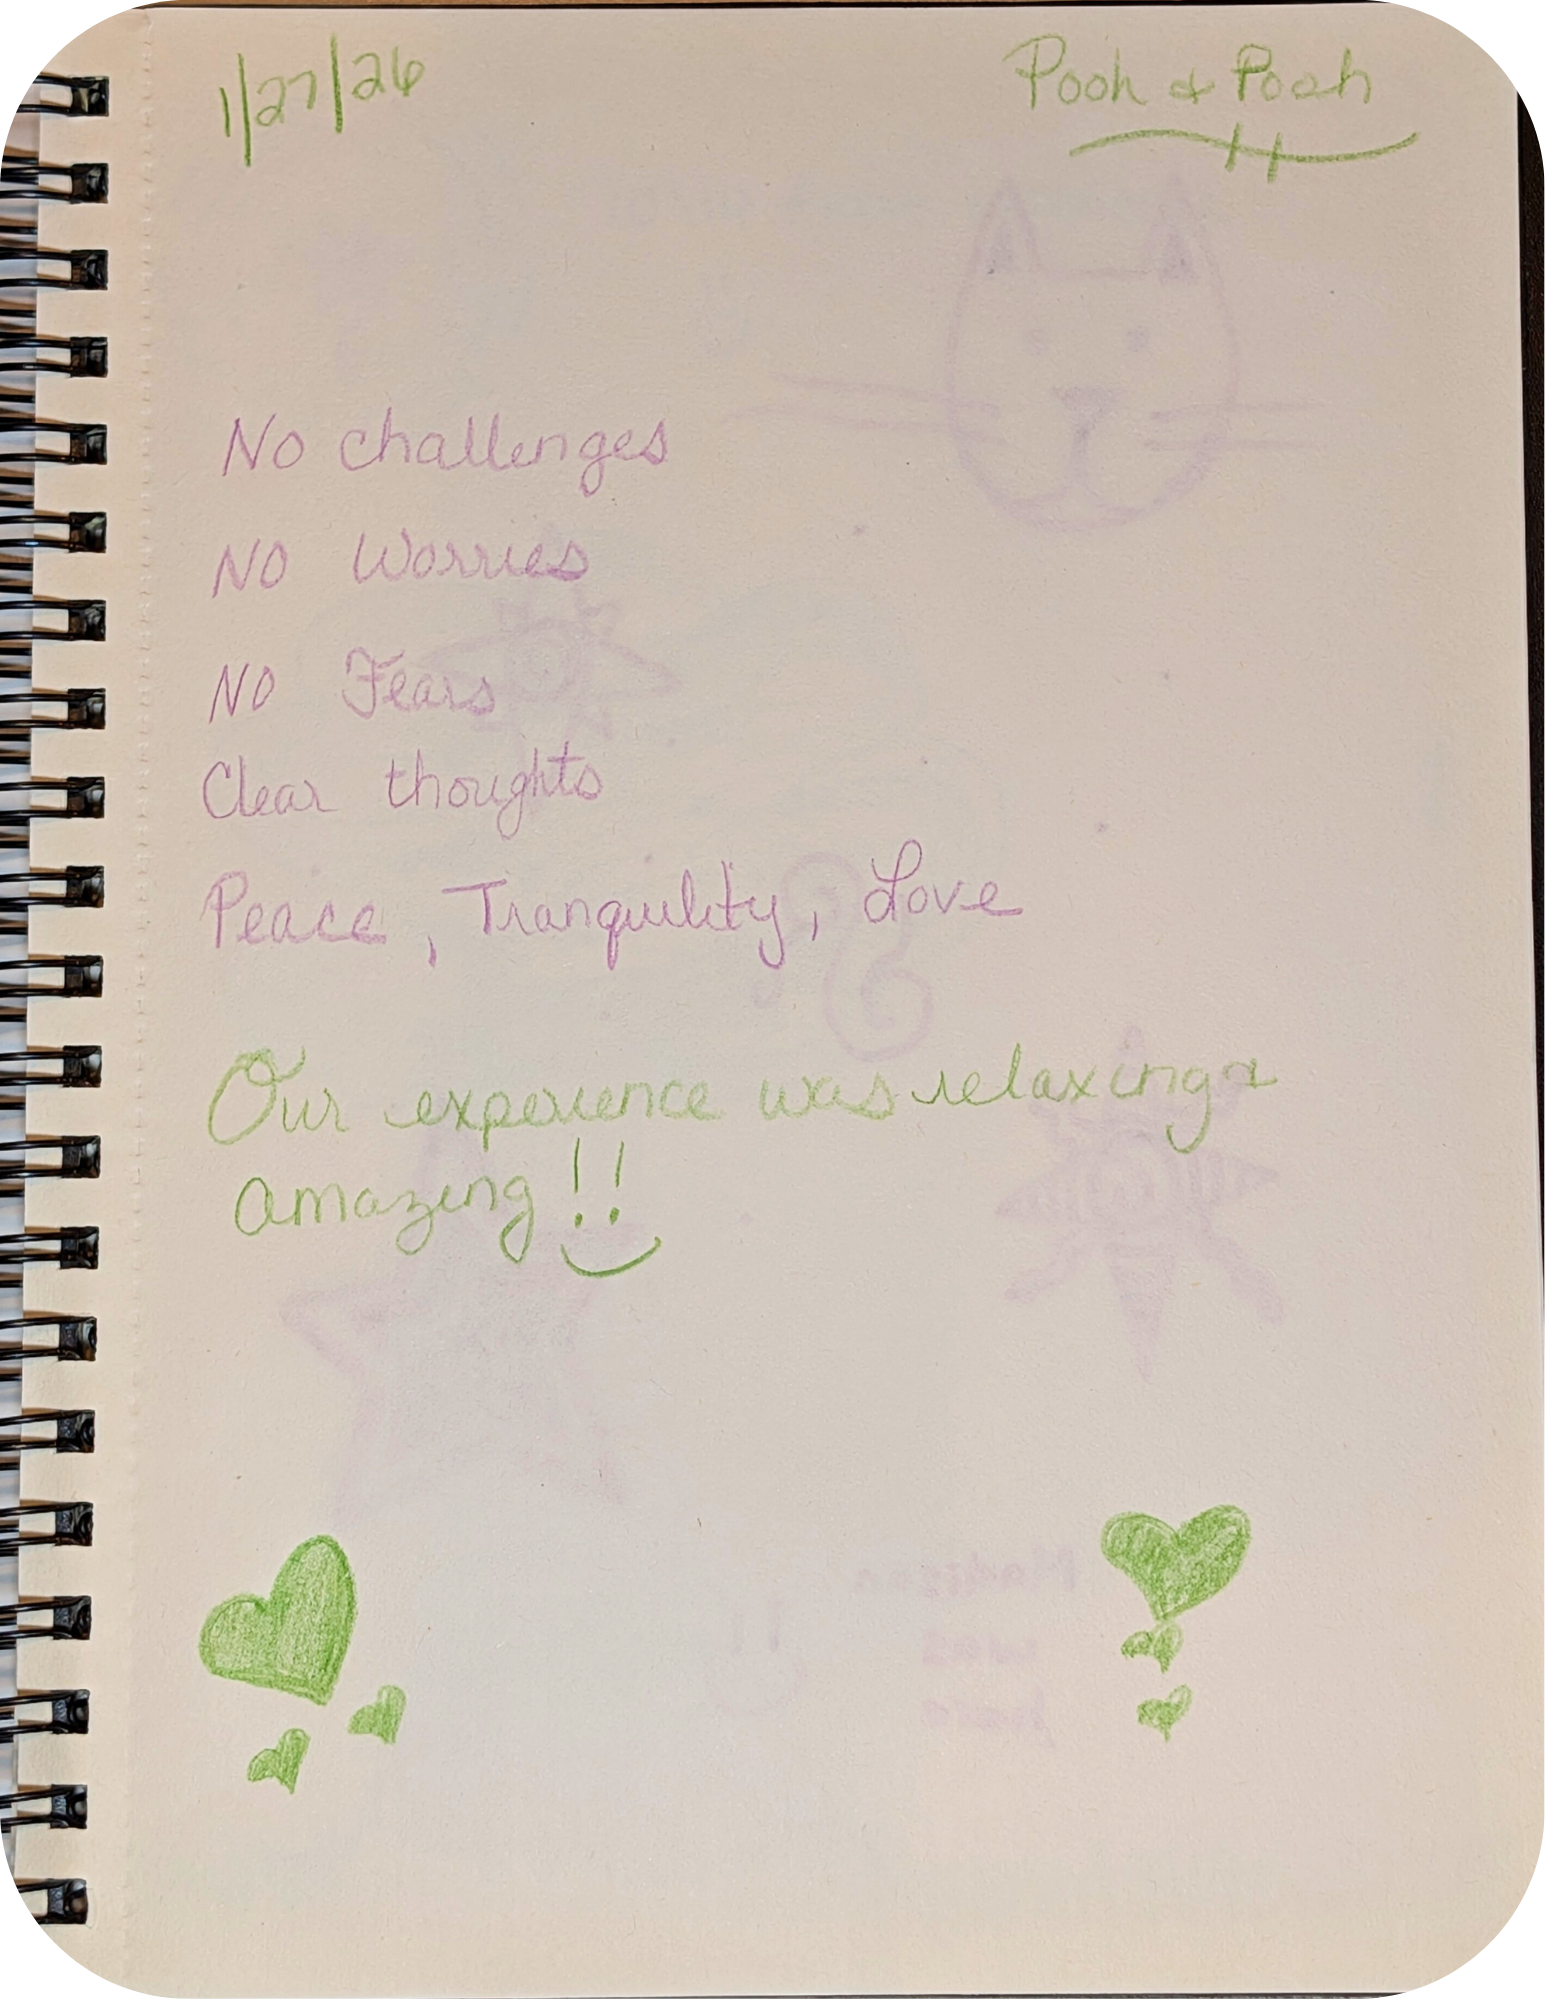 1/27/26
Pooh & Pooh
No challenges
NO Worries
NO Fears
Clear thoughts
Peace, Tranquility, Love
Our experience was relaxing &
amazing!!
Madison
was
here